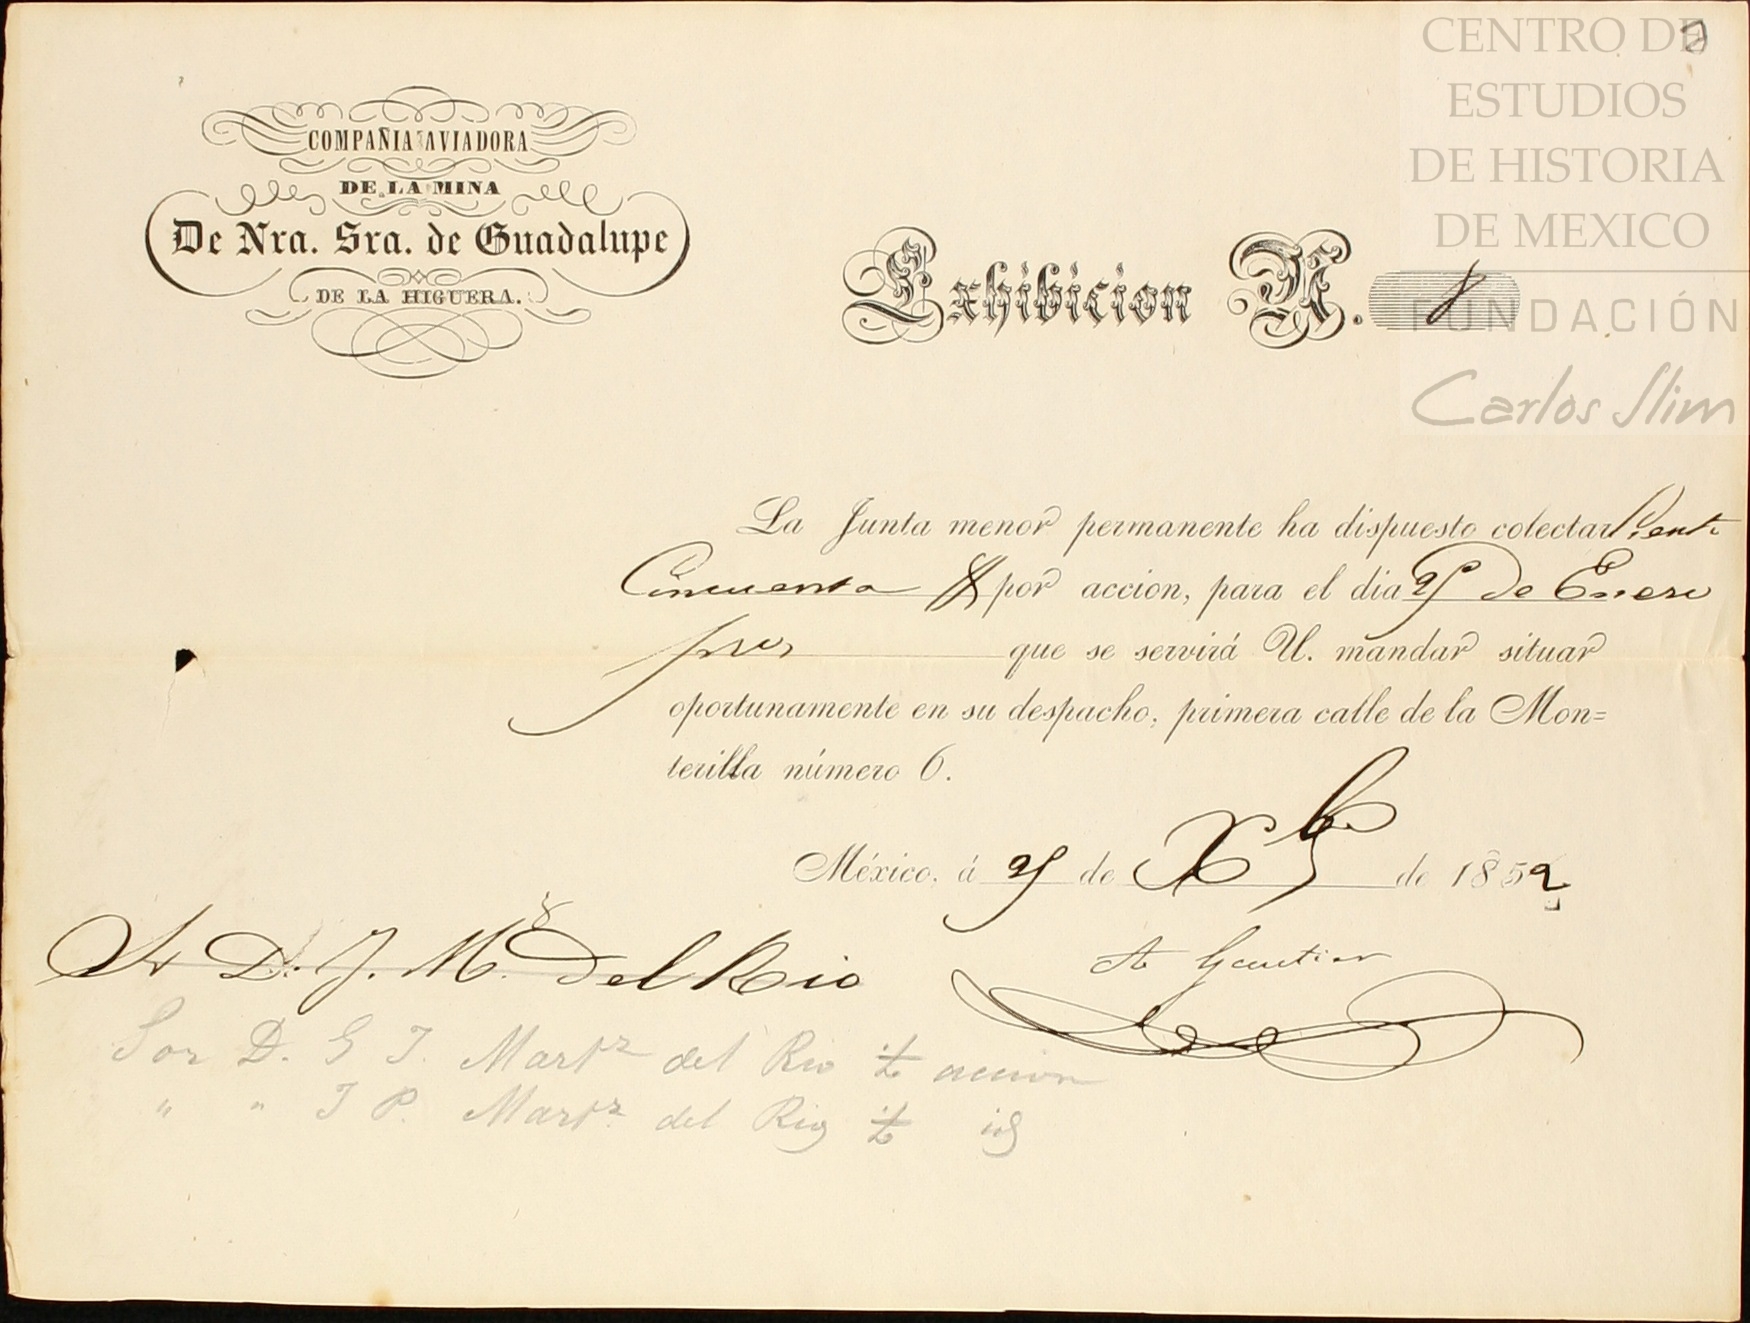 CENTRO DE
ESTUDIOS
DE HISTORIA
DE MEXICO
FUNDACIÓN
Carlos Slim
COMPAÑIA AVIADORA
DE LA MINA
De Nra. Sra. de Guadalupe
DE LA HIGUERA.
Exhibicion N. 8
La Junta menor permanente ha dispuesto colectar
Cincuenta $ por accion, para el dia de Enero
que se servirá U. mandar situar
oportunamente en su despacho, primera calle de la Mon=
terilla número 6.
México, á de X de 1852
Sr D. J. M. del Rio
A Gautier
Sor D. G J. Martz del Rio ½ accion
" " J P. Martz. del Rio ½ id